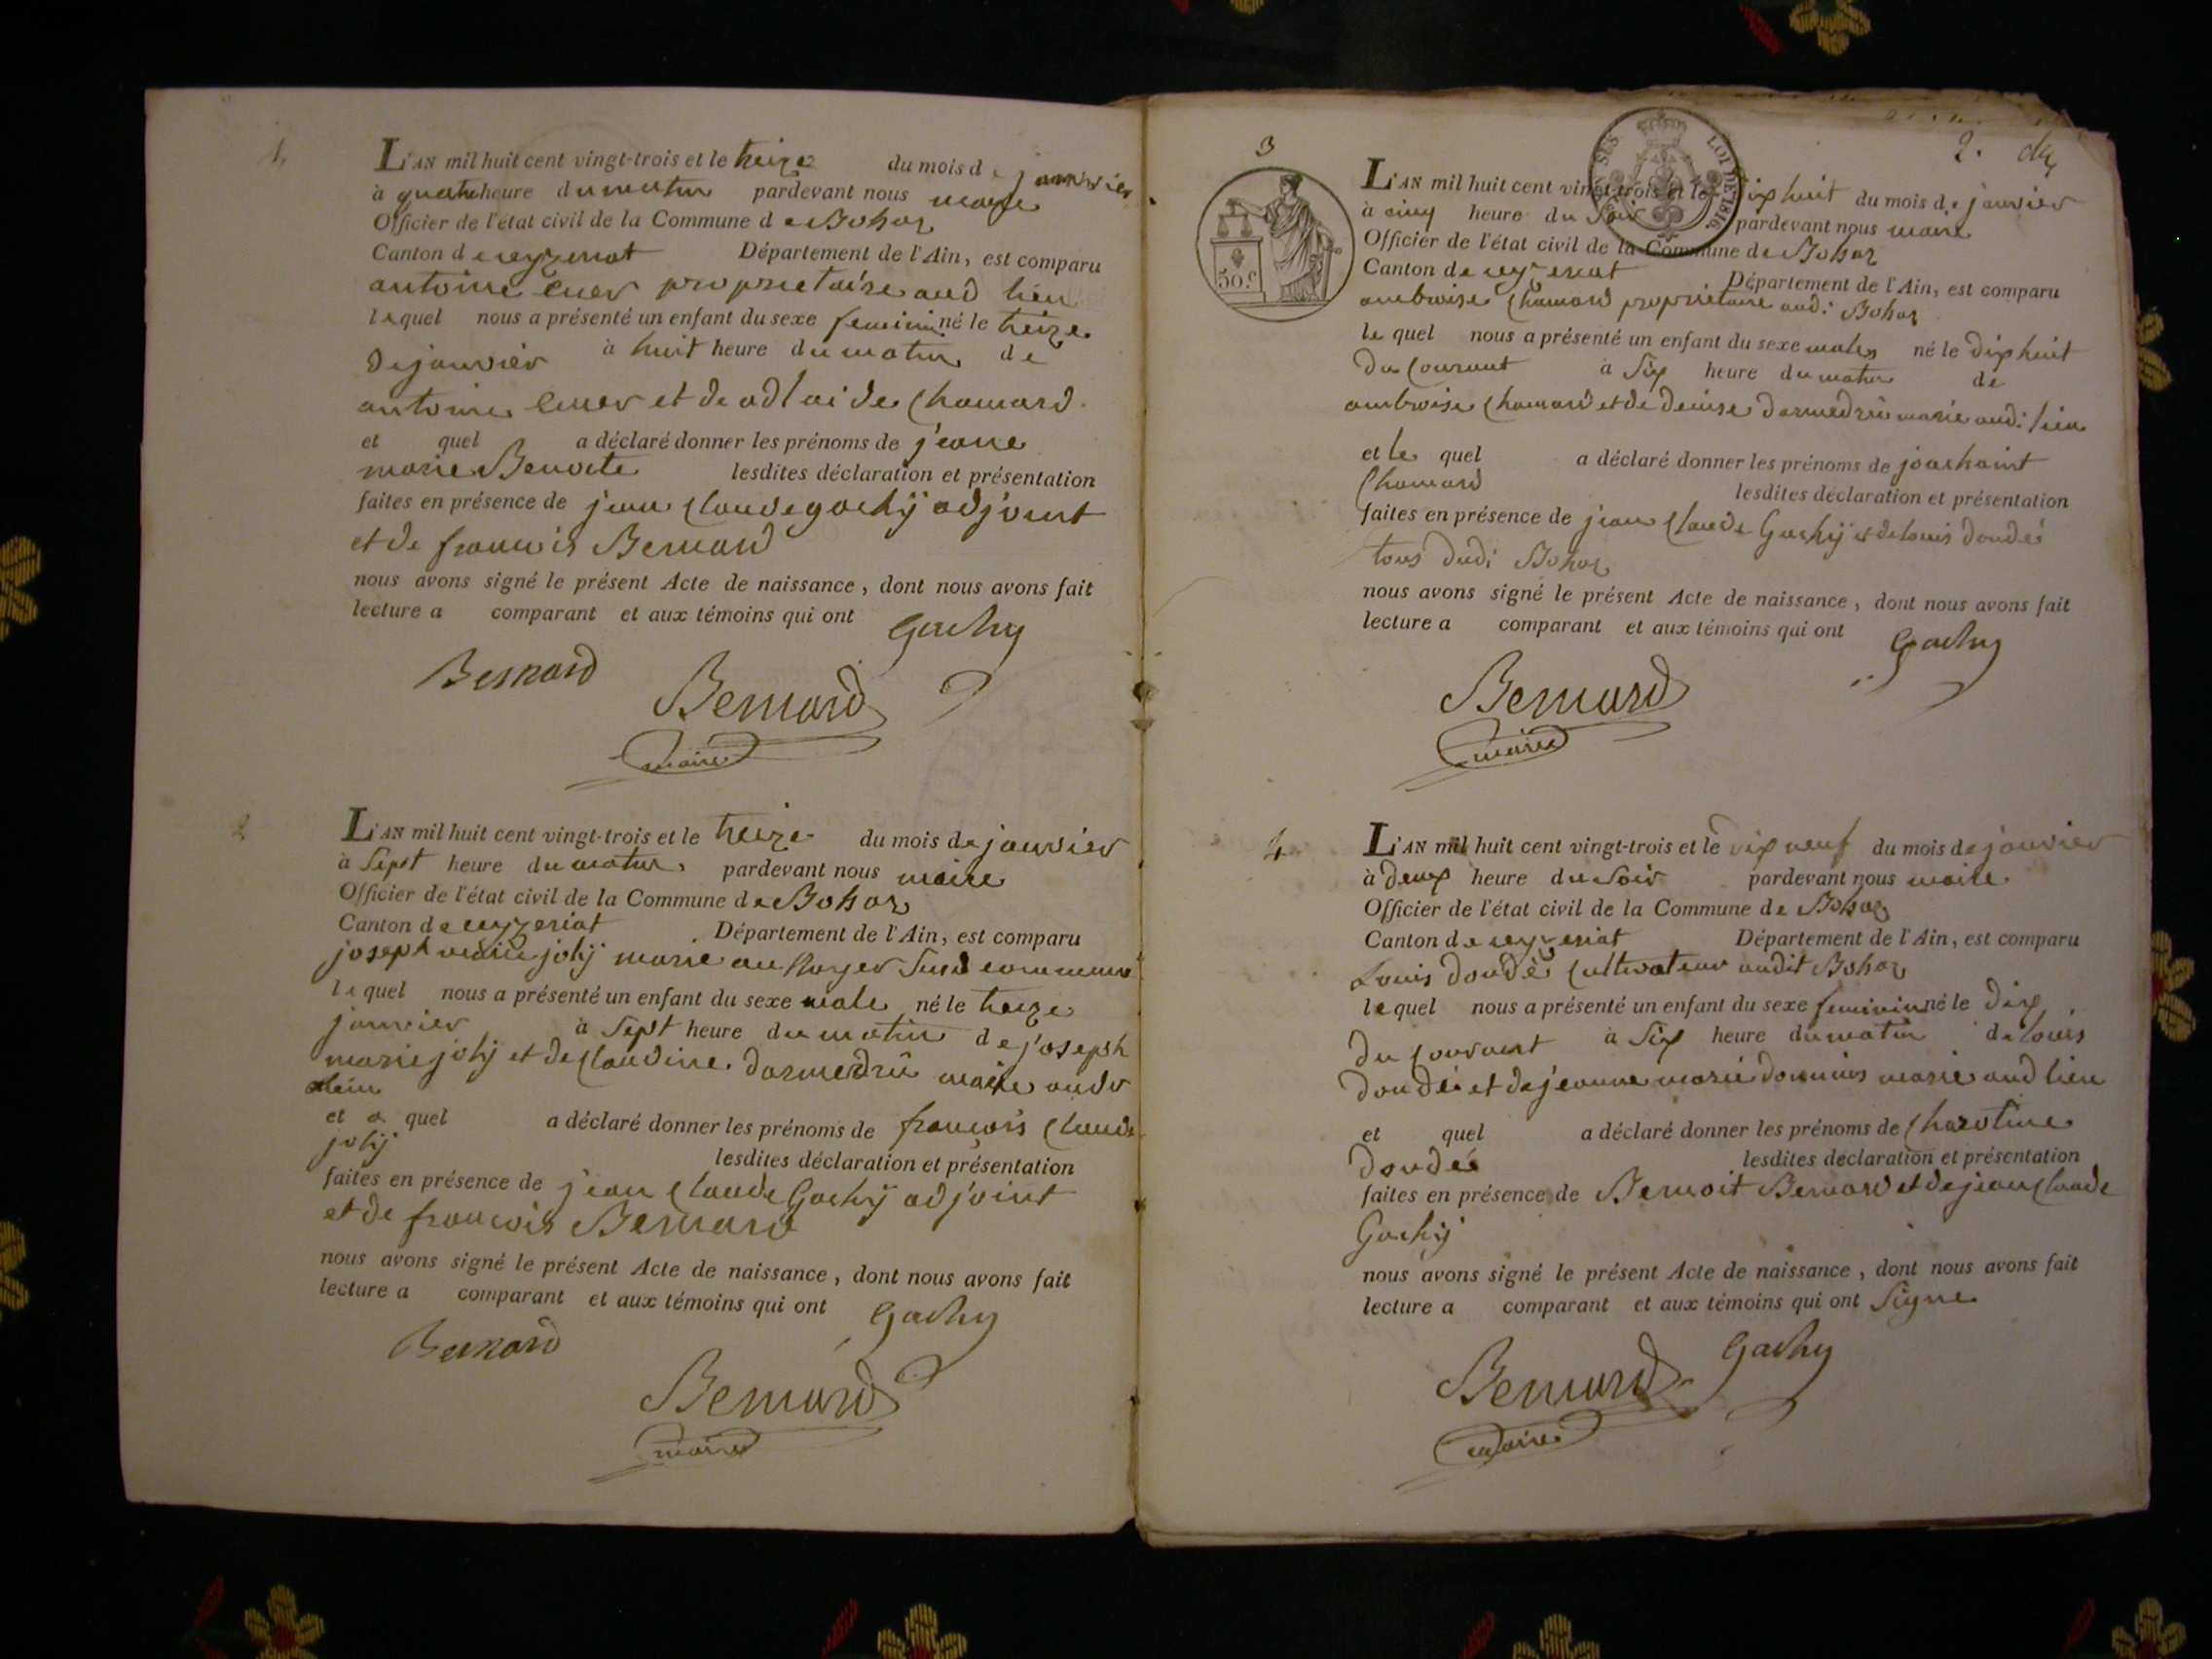 1.
L'AN mil huit cent vingt-trois et le treize du mois de janvier
à quatre heure du matin pardevant nous maire
Officier de l'état civil de la Commune de Bohaz
Canton de ceyzeriat Département de l'Ain, est comparu
antoine propriétaire aud lieu
lequel nous a présenté un enfant du sexe feminin né le treize
de janvier à huit heure du matin de
antoine et de adlaide Chamard
et quel a déclaré donner les prénoms de jeane
marie Benoite lesdites déclaration et présentation
faites en présence de jean Claude gachÿ adjoint
et de francois Bernard
nous avons signé le présent Acte de naissance, dont nous avons fait
lecture a comparant et aux témoins qui ont
Gachy
Bernard
Bernard
maire
2
L'AN mil huit cent vingt-trois et le treize du mois de janvier
à Sept heure du matin pardevant nous maire
Officier de l'état civil de la Commune de Bohaz
Canton de ceyzeriat Département de l'Ain, est comparu
joseph marie jolÿ marie au commune
lequel nous a présenté un enfant du sexe male né le treize
janvier à Sept heure du matin de joseph
marie jolÿ et de Claudine darmedru
et quel a déclaré donner les prénoms de francois Claude
jolÿ lesdites déclaration et présentation
faites en présence de jean Claude Gachÿ adjoint
et de francois Bernard
nous avons signé le présent Acte de naissance, dont nous avons fait
lecture a comparant et aux témoins qui ont
Gachy
Bernard
Bernard
maire
3
2.
LOI DE 1816
50 c
L'AN mil huit cent vingt-trois et le dix huit du mois de janvier
à cinq heure du Soir pardevant nous maire
Officier de l'état civil de la Commune de Bohaz
Canton de ceyzeriat Département de l'Ain, est comparu
ambroise Chamard propriétaire audi Bohaz
le quel nous a présenté un enfant du sexe males né le dix huit
du Courant à Six heure du matin de
ambroise Chamard et de denise darmedru marie audi lieu
et le quel a déclaré donner les prénoms de
Chamard lesdites déclaration et présentation
faites en présence de jean Claude Gachÿ et de louis doudé
tous dudi Bohaz
nous avons signé le présent Acte de naissance, dont nous avons fait
lecture a comparant et aux témoins qui ont
Gachy
Bernard
maire
4
L'AN mil huit cent vingt-trois et le dix neuf du mois de janvier
à deux heure du Soir pardevant nous maire
Officier de l'état civil de la Commune de Bohaz
Canton de ceyzeriat Département de l'Ain, est comparu
Louis doudé Cultivateur audit Bohaz
lequel nous a présenté un enfant du sexe feminin né le dix
du Courant à Six heure du matin de louis
doudé et de jeanne marie marie aud lieu
et quel a déclaré donner les prénoms de Charotine
doudé lesdites déclaration et présentation
faites en présence de Bernoit Bernard et de jean Claude
Gachÿ
nous avons signé le présent Acte de naissance, dont nous avons fait
lecture a comparant et aux témoins qui ont Signe
Gachy
Bernard
maire